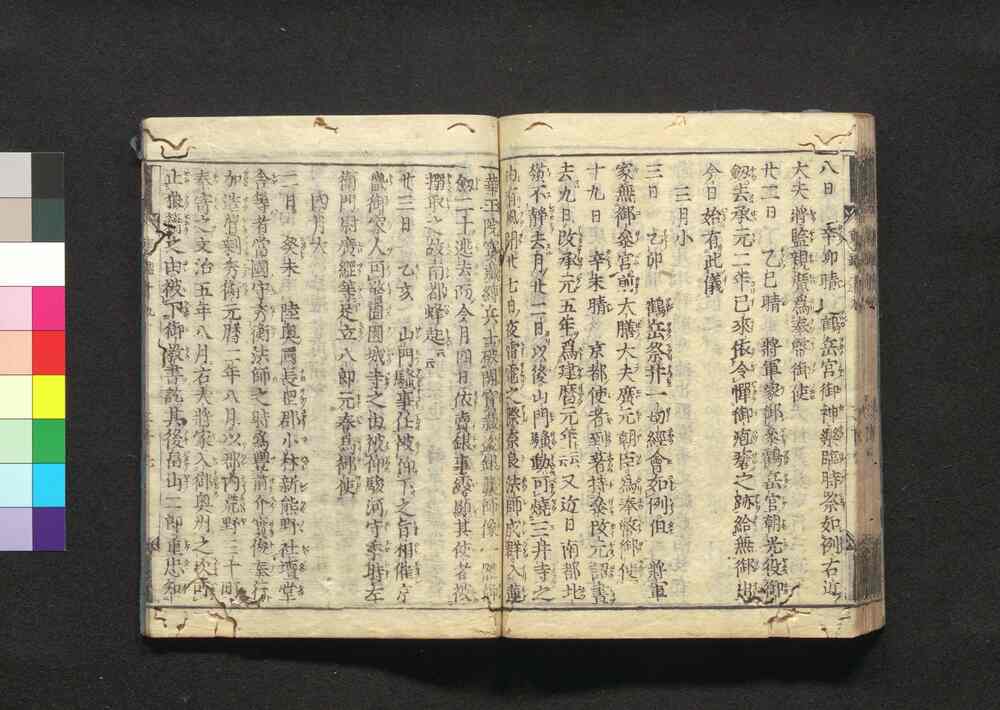 八日　辛卯晴　鶴岳宮御神樂臨時祭如例右近
大夫將監親廣爲奉幣御使
廿二日　乙巳晴　將軍家御參鶴岳宮朝光役御
劔去承元二年已來依令憚御疱瘡之跡給無御出
今日始有此儀
三月小
三日　乙卯　鶴岳祭并一切經會如例但　將軍
家無御參宮前大膳大夫廣元朝臣爲奉幣御使
十九日　辛未晴　京都使者到著持參改元詔書
去九日改承元五年爲建曆元年云云又近日南都北
嶺不靜去月廿二日以後山門騷動可燒三井寺之
由有風聞廿七日夜雷電之際奈良法師成群入蓮
華王院寶藏縛兵士破開寶藏盜銀藥師像
劔二十逃去而今月四日依賣銀事露顯其使者被
搦取之故南都蜂起云云
廿三日　乙亥　山門騷事仕被仰下之旨相催在
京御家人可警固園城寺之由被仰駿河守季時左
衛門尉廣綱筆足立八郎元春爲御使
四月大
二日　癸未　陸奥國長岡郡小林新熊野社壇堂
舎等者當國守秀衡法師之時寫豐前介實俊奉行
加造営剰秀衡元曆二年八月以郡内荒野三十町
奉寄之文治五年八月右大將家入御奥州之次可
止狼藉之由被下御教書訖其後畠山二郎重忠知